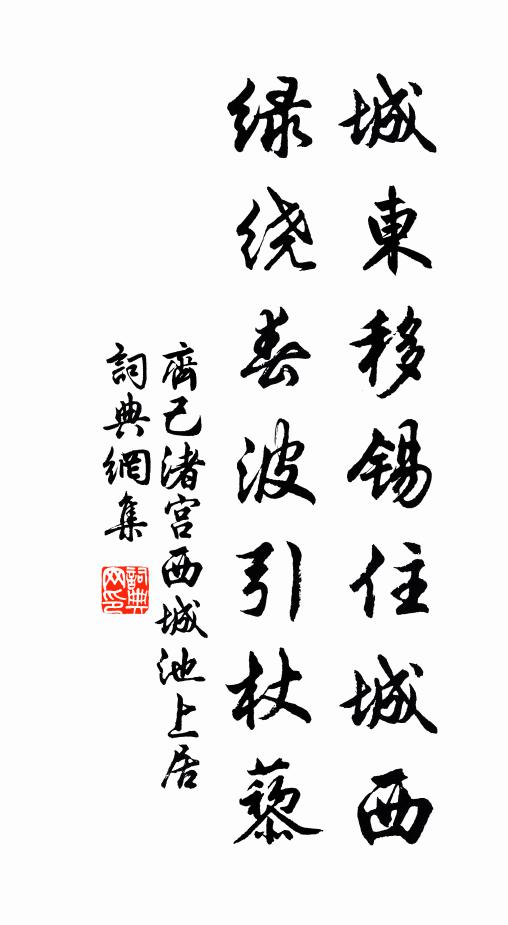 城東移锡住城西
绿绕春波引杖藜
齊己渚宫西城池上居
詞典網集
詞典网印